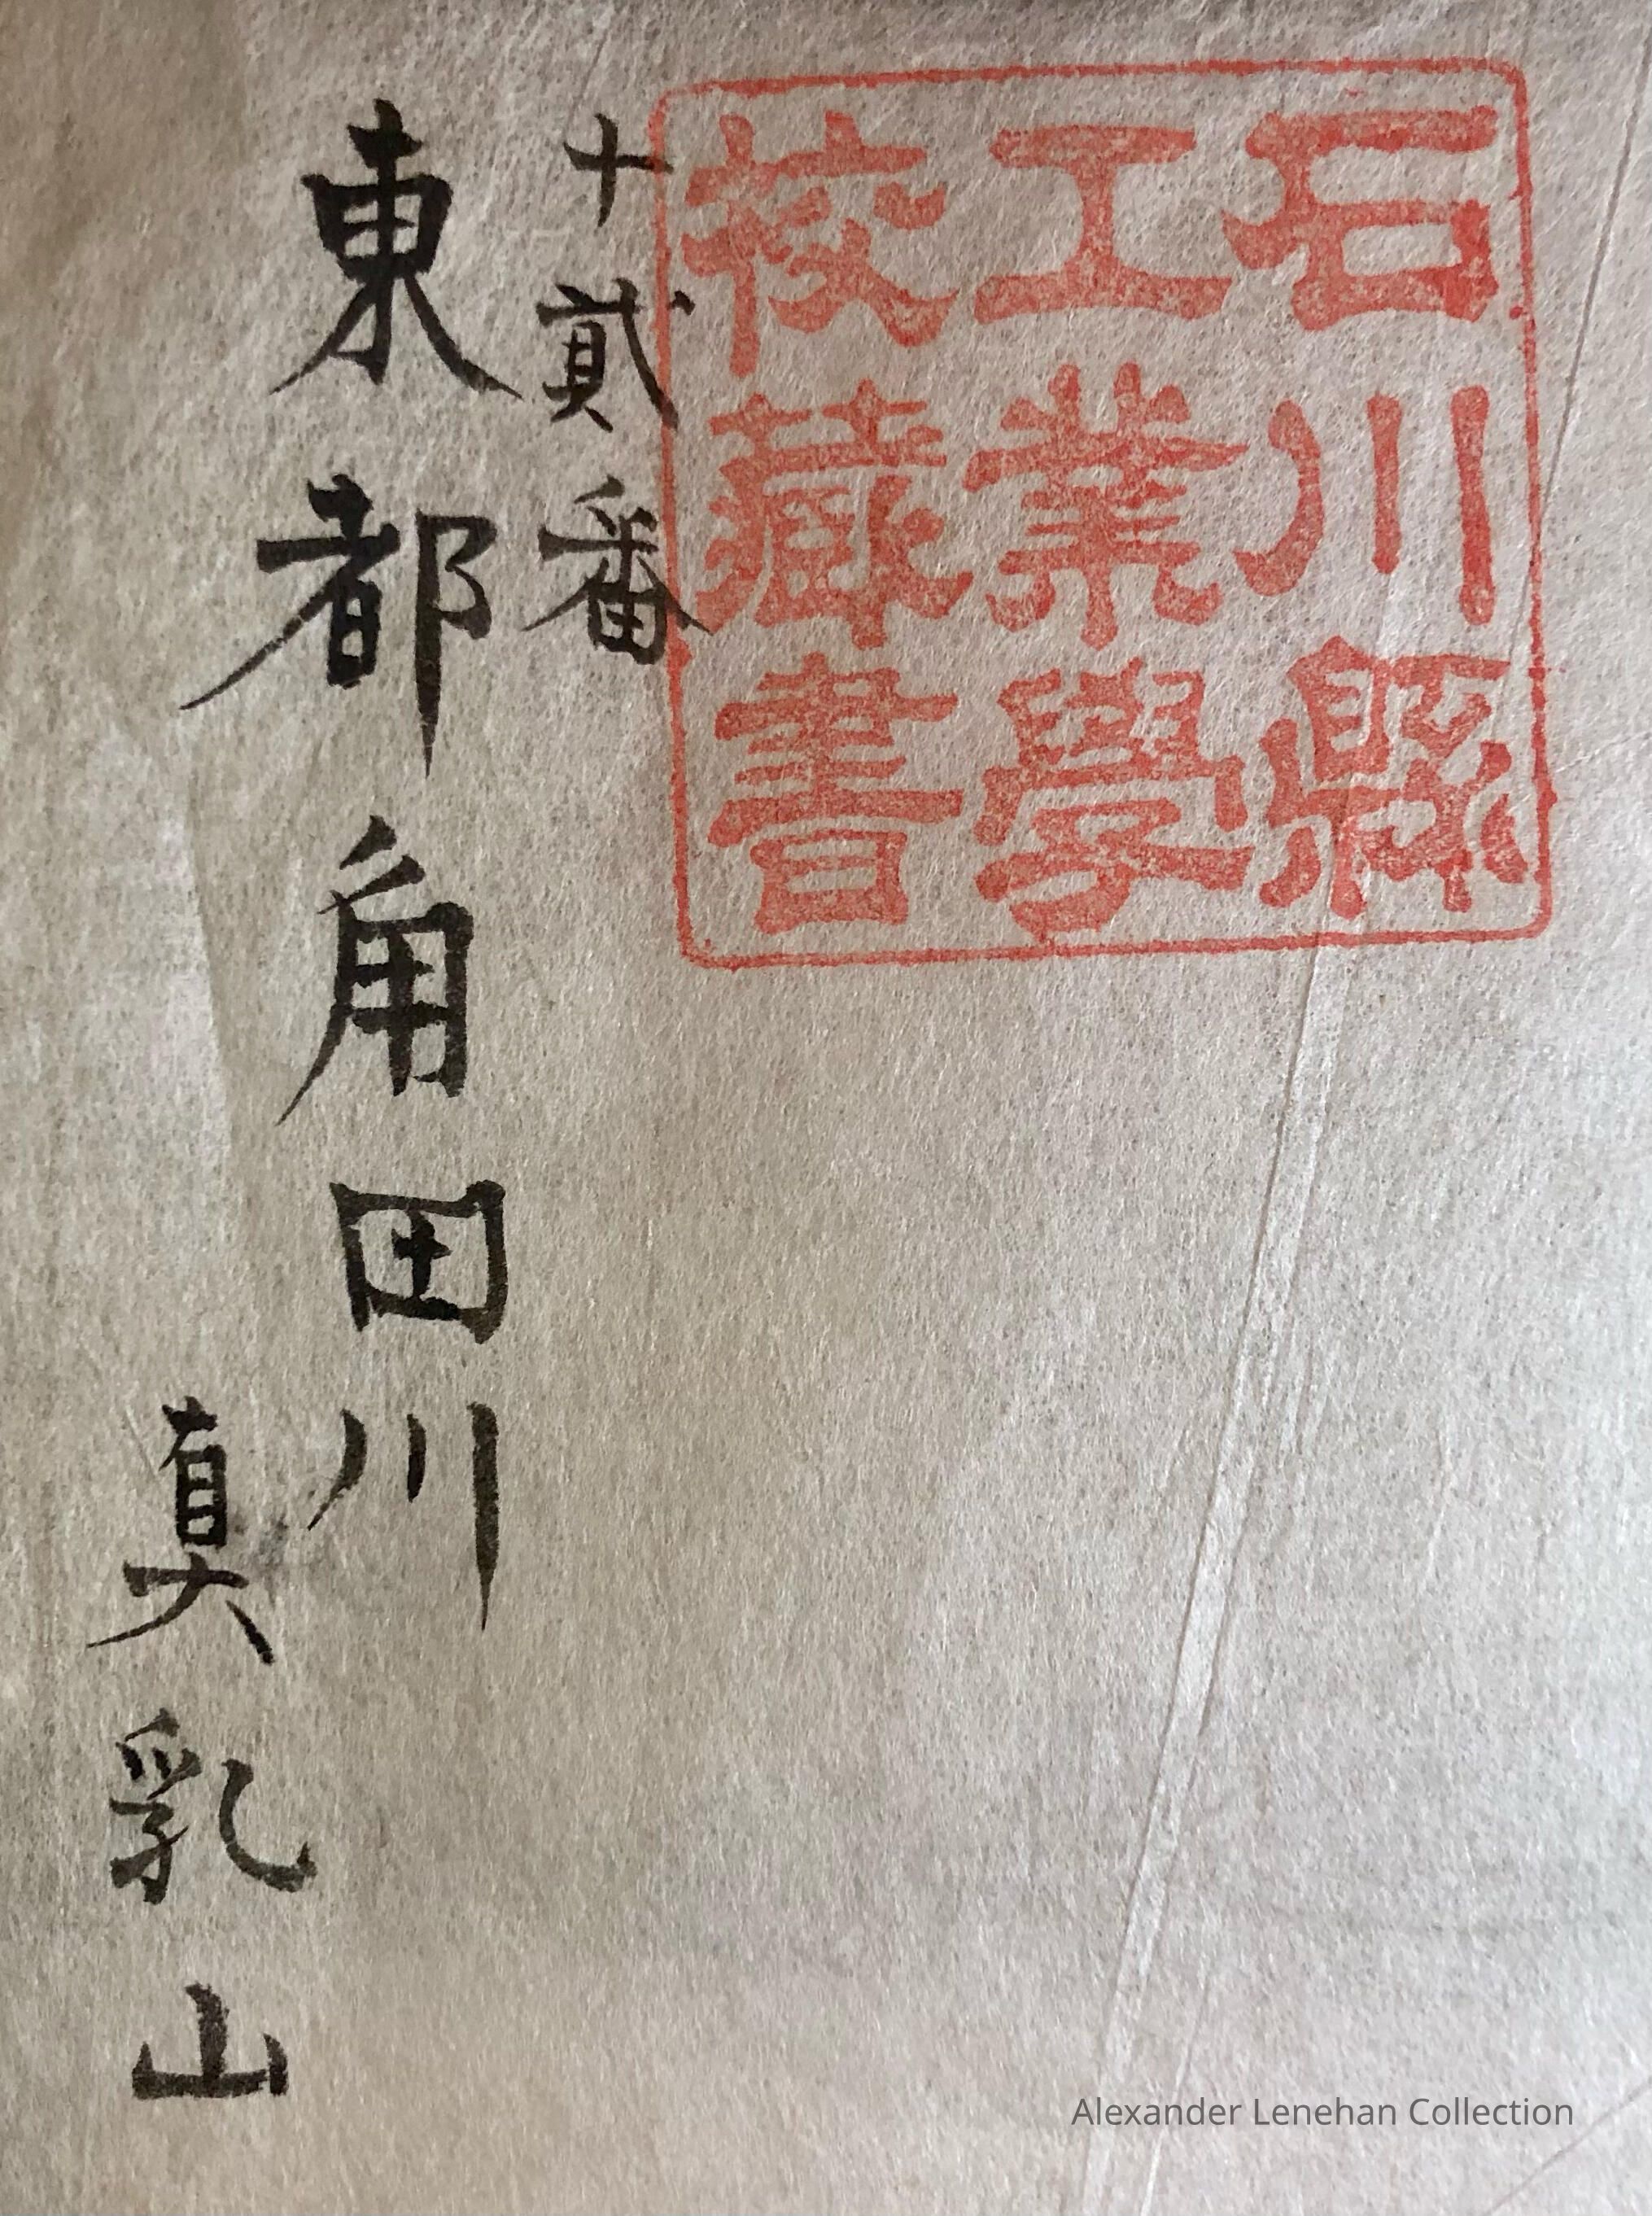 石川縣
工業學
校藏書
十貳番
東都角田川
真乳山
Alexander Lenehan Collection